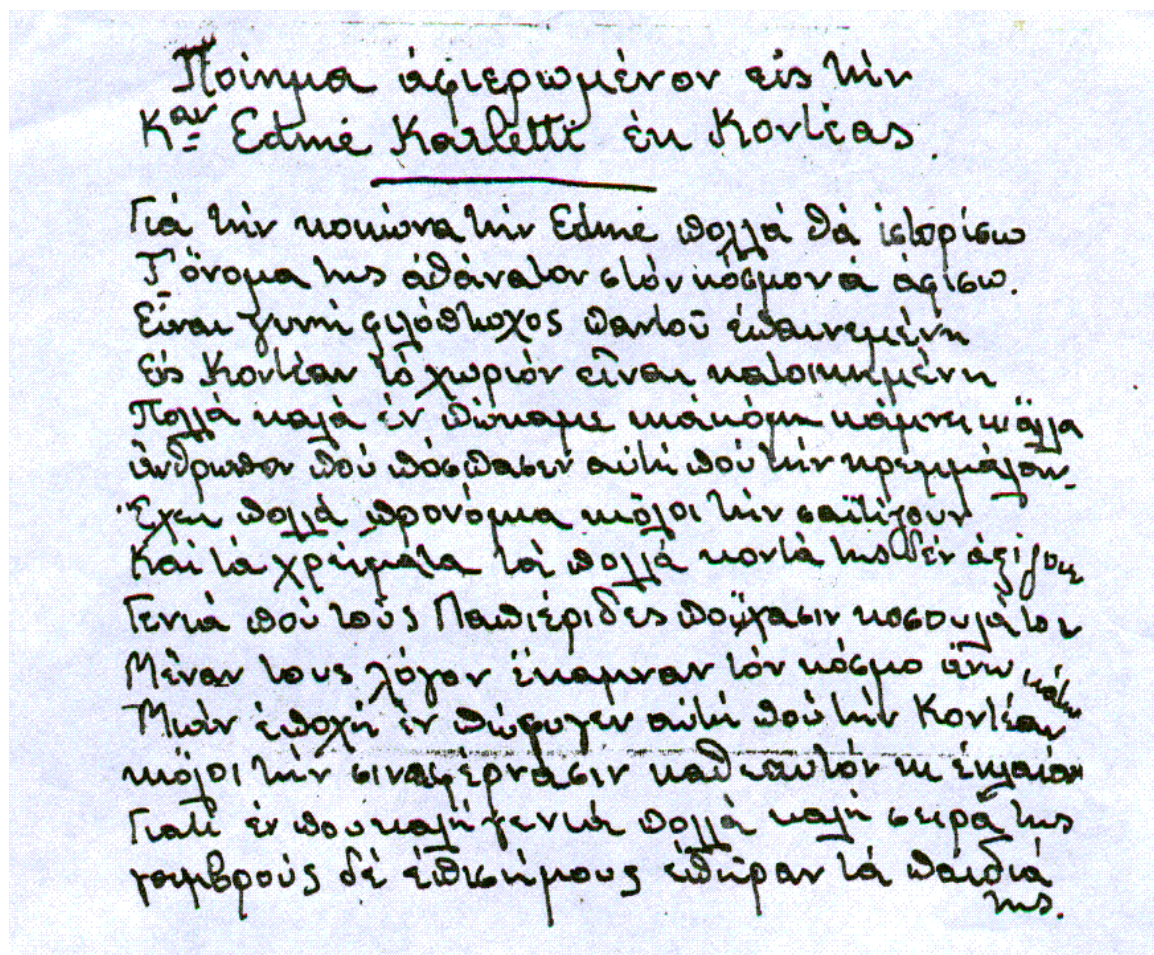 Ποίημα ἀφιερωμένον εἰς τὴν
Καν Edmé Karletti ἐκ Κοντέας.
Γιά τὴν κοκώνα τὴν Edmé πολλά θά ἱστορίσω
Τ' ὄνομα της ἀθάνατον στόν κόσμον ἀ ἀφίσω.
Εἶναι γυνή φιλόπτωχος παντοῦ ἐπαινεμένη
Εἰς Κοντέαν τό χωριόν εἶναι κατοικημένη
Πολλά καλά ἐν πὤκαμε κιἀκόμη κάμνει κι ἄλλα
ἄνθρωπον πού πόσπασεν αὐτή πού τήν κρεμμάλαν
Ἔχει πολλά προνόμια κιὅλοι τήν σαϊτίζουν
Καί τά χρήματα τά πολλά κοντά της δέν ἀξίζουν
Γενιά πού τούς Παπιέριδες ποὔχασιν κοσουλάτον
Μέναν τους λόγον ἔκαμναν τόν κόσμο ἄνω κάτω
Μιάν ἐποχή ἐν πὤφυγεν αὐτή πού τήν Κοντέαν
κιὅλοι τήν σιναφερνάσιν καθεαυτόν κι ἐκλαίαν
Γιατί ἐν που καλή γενιά πολλά καλή σειρά της
γαμβρούς δέ ἐπισήμους ἐπῆραν τά παιδιά
της.